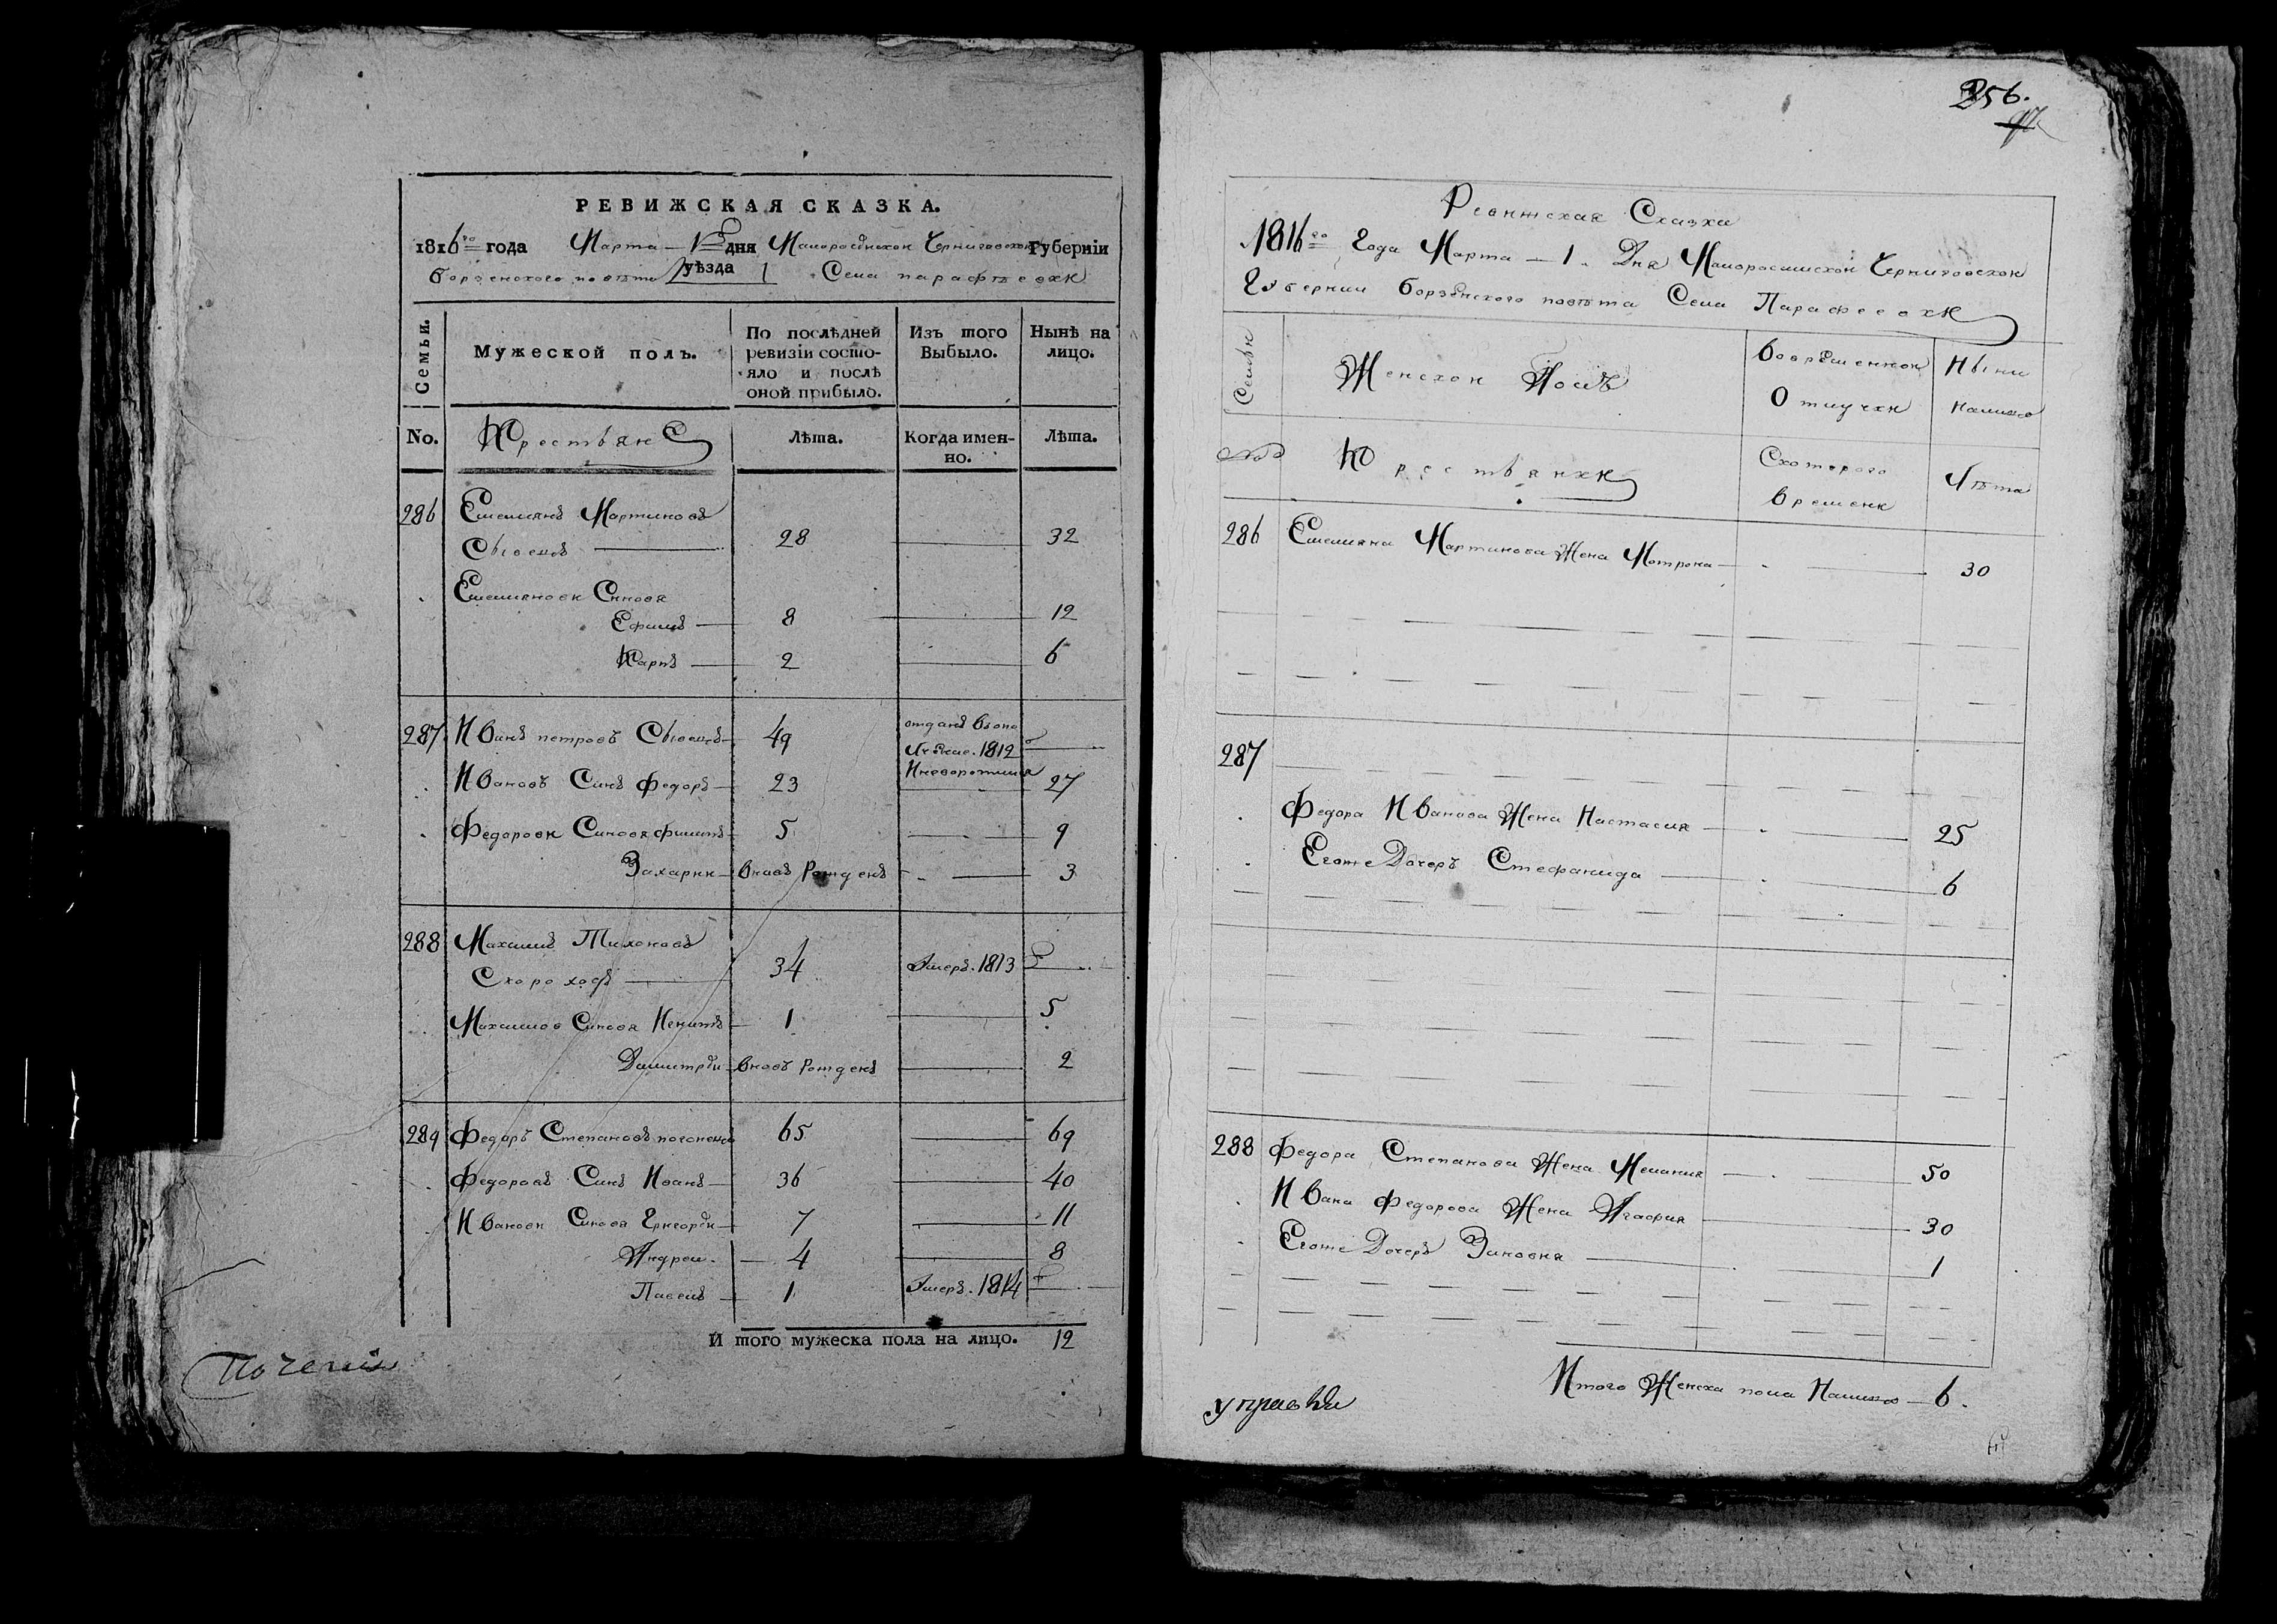 РЕВИЖСКАЯ СКАЗКА.
1816го года Марта 1 дня Малоросійской Черниговской Губерніи
Борзенского повѣта уѣзда Села парафѣевки
Семьи.
Мужеской полъ.
По послѣдней ревизіи состояло и послѣ оной прибыло.
Изъ того Выбыло.
Нынѣ на лицо.
No.
Крествяне
Лѣта.
Когда именно.
Лѣта.
286 Емелиянъ Мартиновъ
28 32
Емелиянови Синовя
Ефимъ 8 12
Карпъ 2 6
287 Иванъ петровъ 49 отданъ
1812
Ивановъ Синъ федоръ 23 27
Федорови Синовя филипъ 5 9
Захарии вновь рожденъ 3
288 Максимъ Тихоновъ
Скороходъ 34 Умеръ. 1813
Максимов Синовя 1 5
Димитрїи вновь рожденъ 2
289 Федоръ Степановъ 65 69
Федоровъ Синъ Иванъ 36 40
Иванови Синовя Григорїи 7 11
Андреи 4 8
Павелъ 1 Умеръ. 1814
И того мужеска пола на лицо. 12
256.
97
Ревижская Сказка
1816го Года Марта 1. Дня Малоросииской Черниговской
Губернии Борзенского повѣта Села Парафеевки
Семьи
Женскои Полъ
Вовременнои Отлучки
Ныни налицо
No
Крествянки
Скоторого времени
Лѣта
286 Емелияна Мартинова Жена Мотрона 30
287
Федора Иванова Жена Настасия 25
Егоже Дочеръ Стефанида 6
288 Федора Степанова Жена Мелания 50
Ивана Федорова Жена Агафия 30
Егоже Дочеръ Зиновия 1
Итого Женска пола Налицо 6.